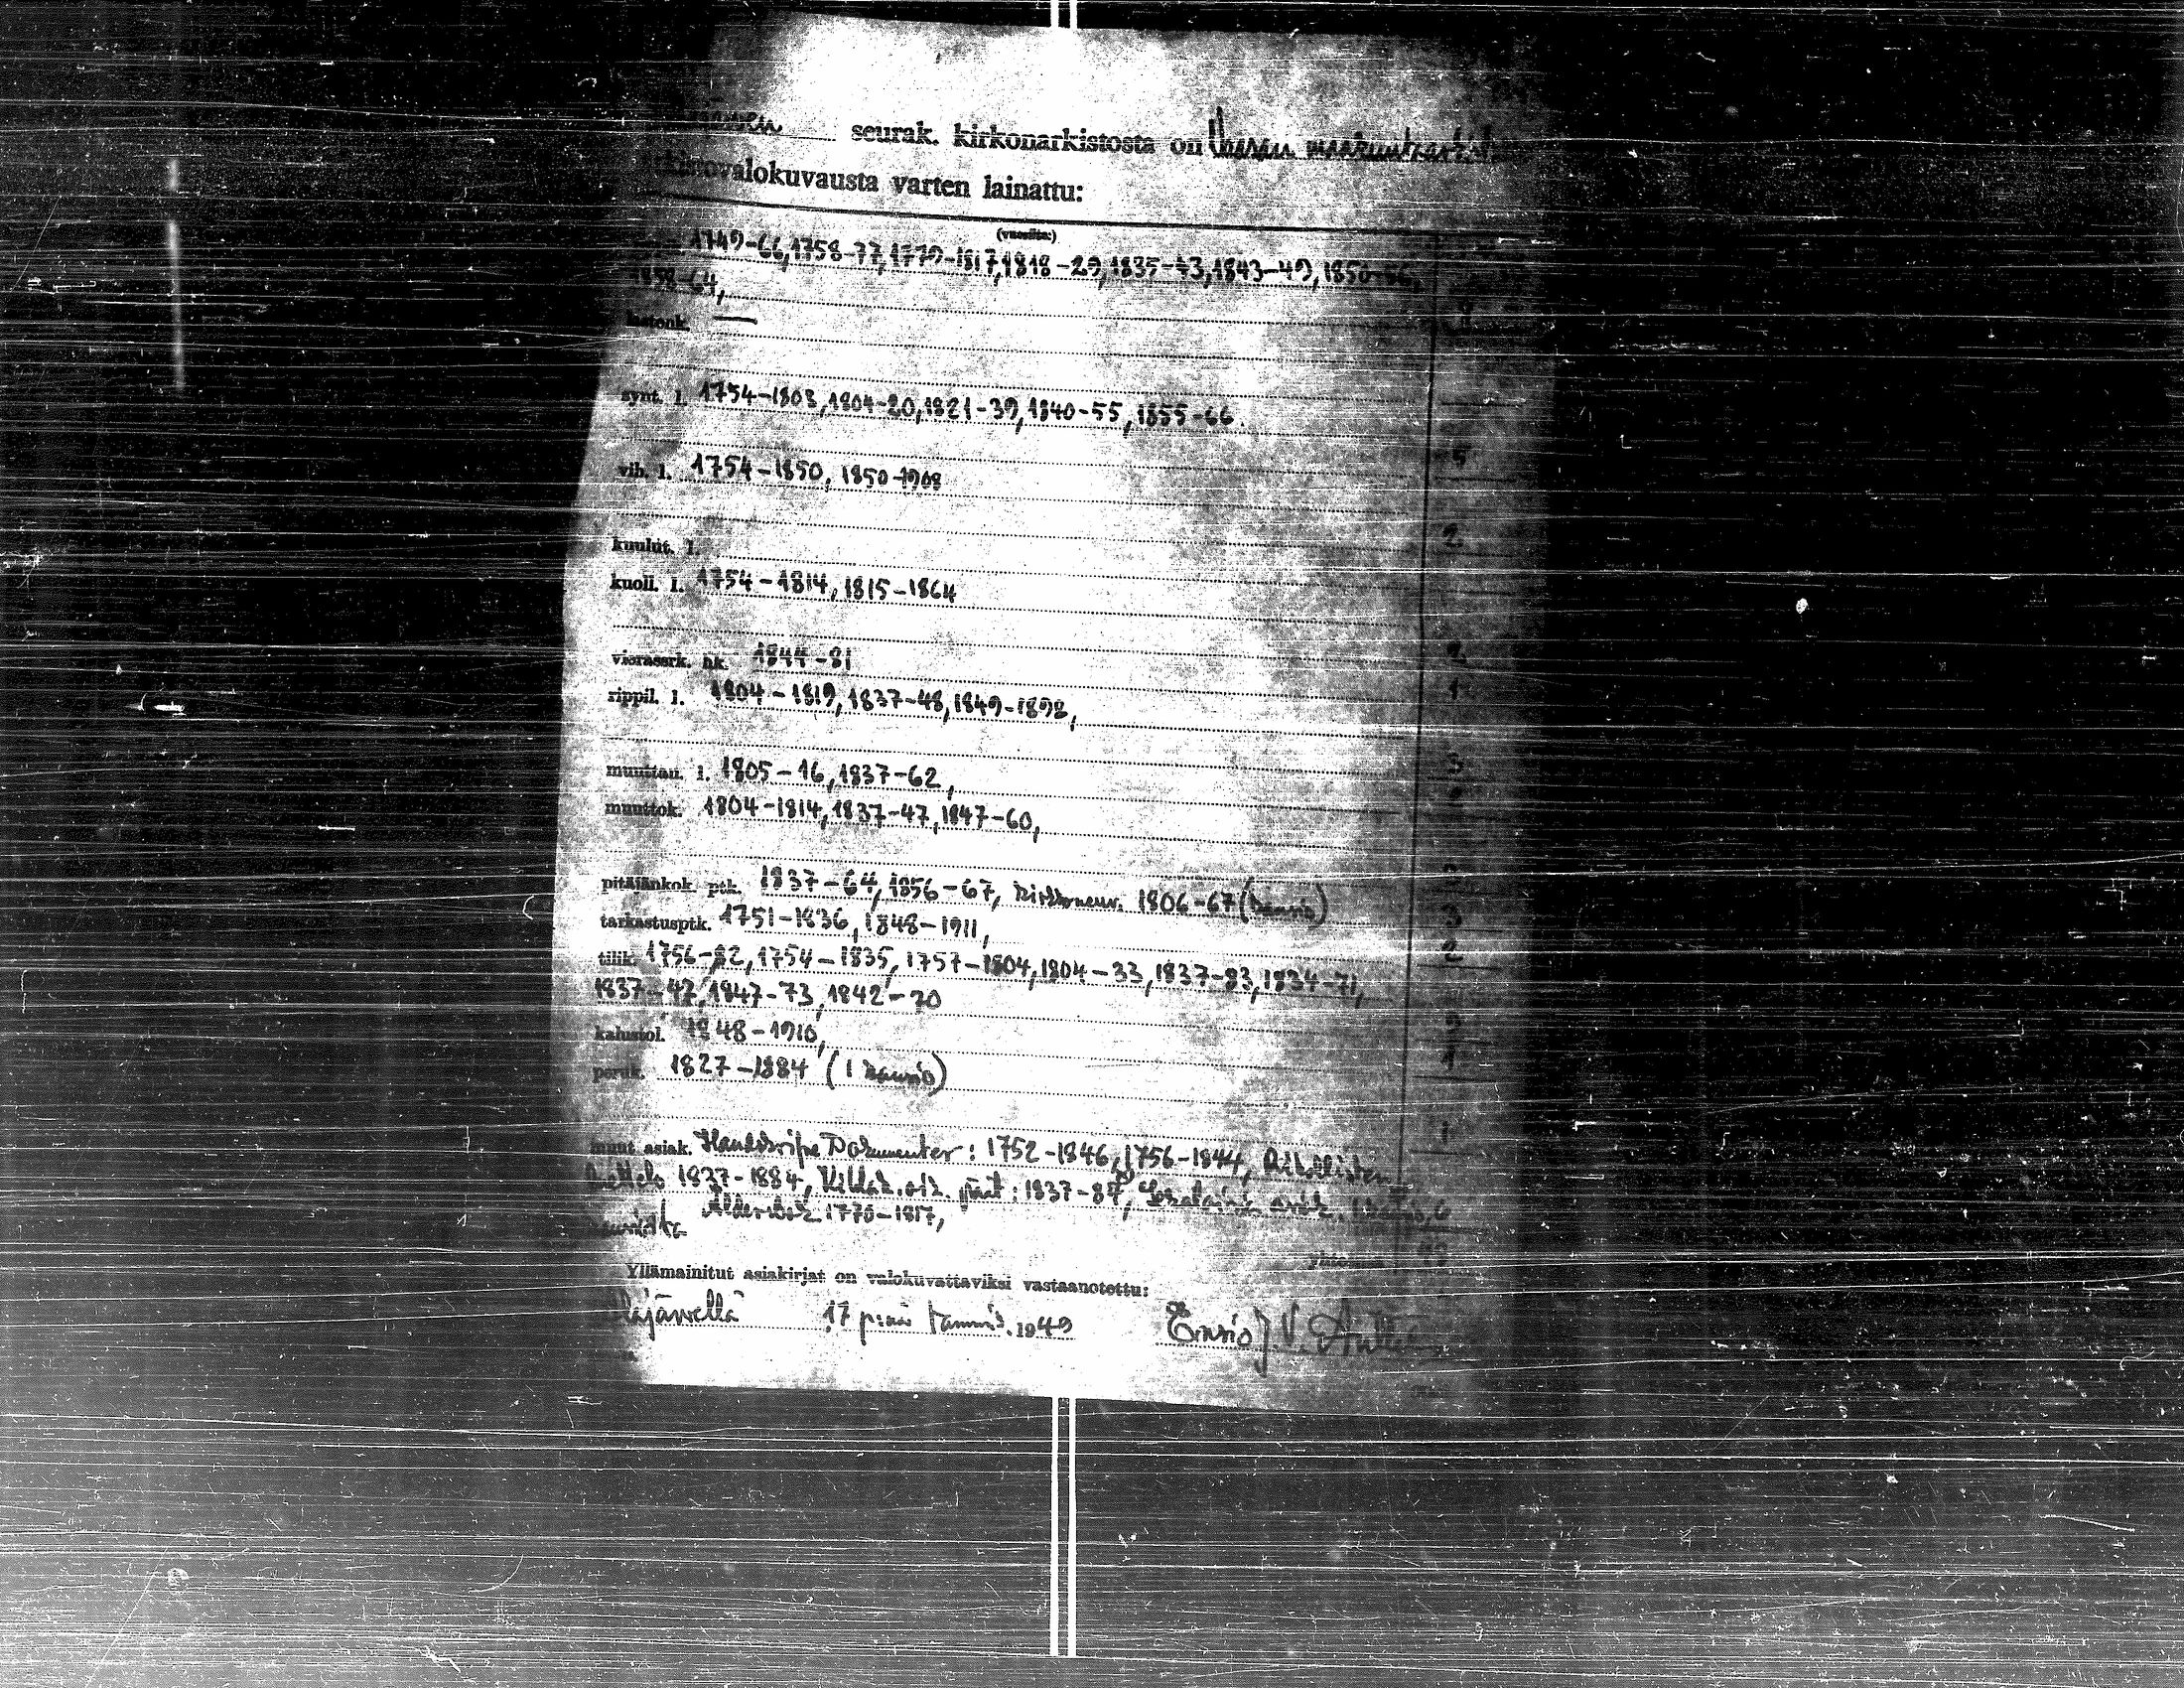 seurak. kirkonarkistosta on Vaasan maakunta-arkistoon
valokuvausta varten lainattu:
(vuosilta:)
1749-66, 1758-77, 1779-1817, 1818-29, 1835-43, 1843-49, 1850-56,
1858-64,
lastenk. —
synt. l. 1754-1803, 1804-20, 1821-39, 1840-55, 1855-66. 5
vih. l. 1754-1850, 1850-1908 2
kuulut. l.
kuoll. l. 1754-1814, 1815-1864 2
vierassrk. hk. 1844-81 1
rippil. l. 1804-1819, 1837-48, 1849-1898, 3
muuttan. l. 1805-16, 1837-62, 2
muuttok. 1804-1814, 1837-47, 1847-60,
pitäjänkok. ptk. 1837-64, 1856-67, Kirkkoneuv. 1806-67 (kansio) 3
tarkastusptk. 1751-1836, 1848-1911, 2
tilik. 1756-82, 1754-1835, 1757-1804, 1804-33, 1837-83, 1834-71,
1837-47, 1847-73, 1842-70 9
kalustol. 1848-1910, 1
peruk. 1827-1884 (1 kansio) 1
muut asiak. Handskrifne Dokumenter: 1752-1846, 1756-1844, Rikollisten
luettelo 1837-1884, 1837-87, 6
1770-1817,
yhteensä
Yllämainitut asiakirjat on valokuvattaviksi vastaanotettu:
17 p:nä tammik. 1949 Ensio J. V.